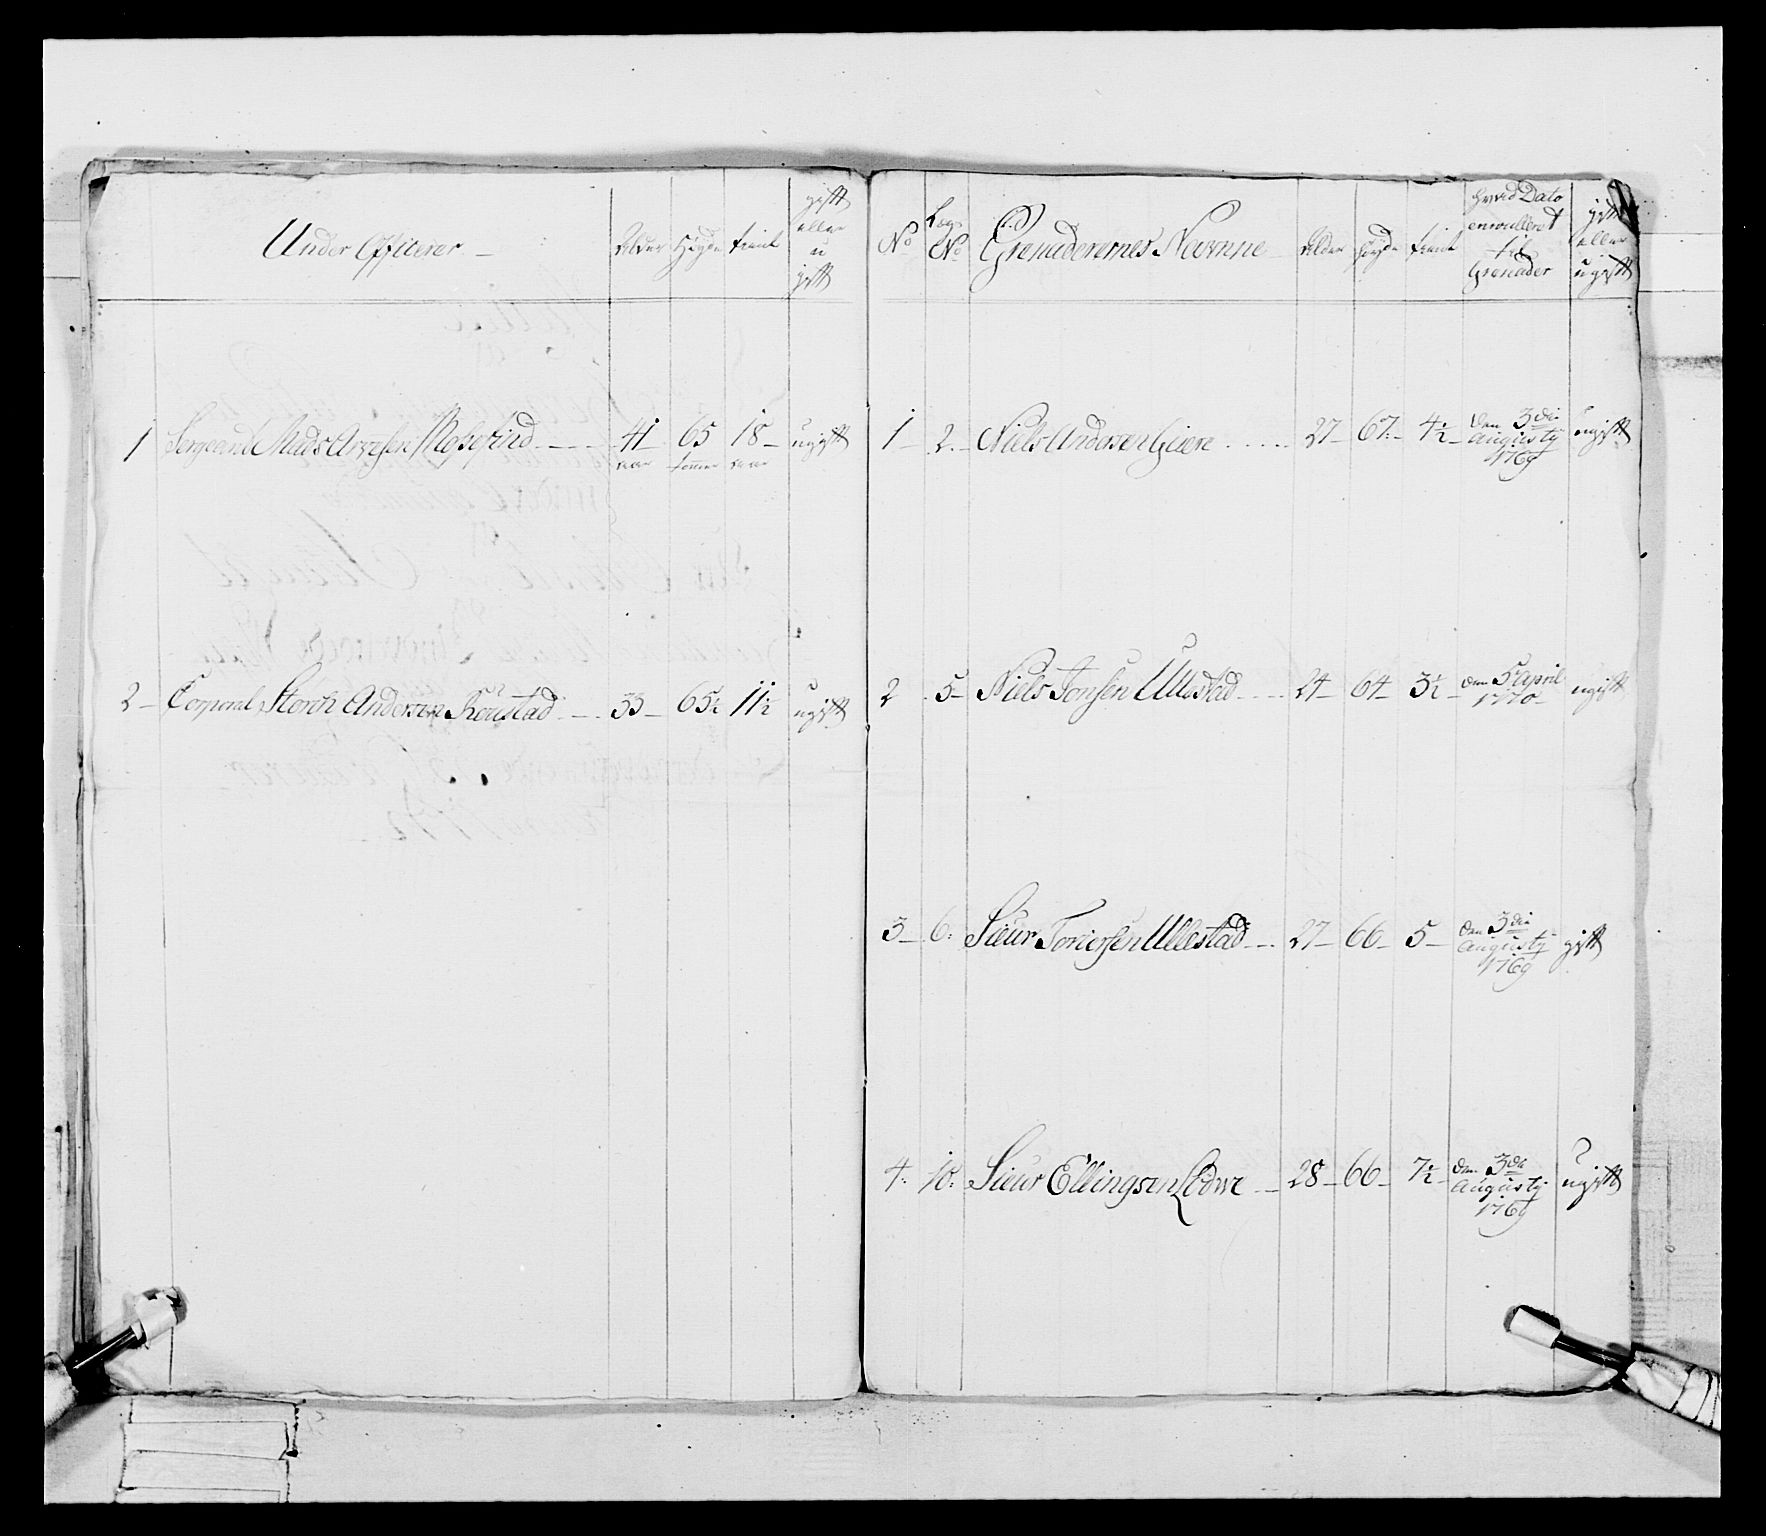 Under Officerer. Alder Høyde tient gift eller u gift
1 Sergeant Mads Arnesen Mosefind 41 aar 65 tommer 18 aar ugift
2 Corporal Storch Andersen Roustad 33 65½ 11½ ugift
No Lægs No Grenaderernes Navnne Alder Høyde tient Hvad Dato enroulleret til Grenader gift eller ugift
1 2. Niels Andersen Giere 27 67. 4½ den 3die Augusty 1769 ugift
2 5 Niels Jonsen Ullestad 24 64 3½ den 5 April 1770 ugift
3 6. Siur Toriersen Ullestad 27 66 5 den 3die Augusty 1769 gift
4. 18. Siur Ellingsen Lødve 28 66 7½ den 3die Augusty 1769 ugift